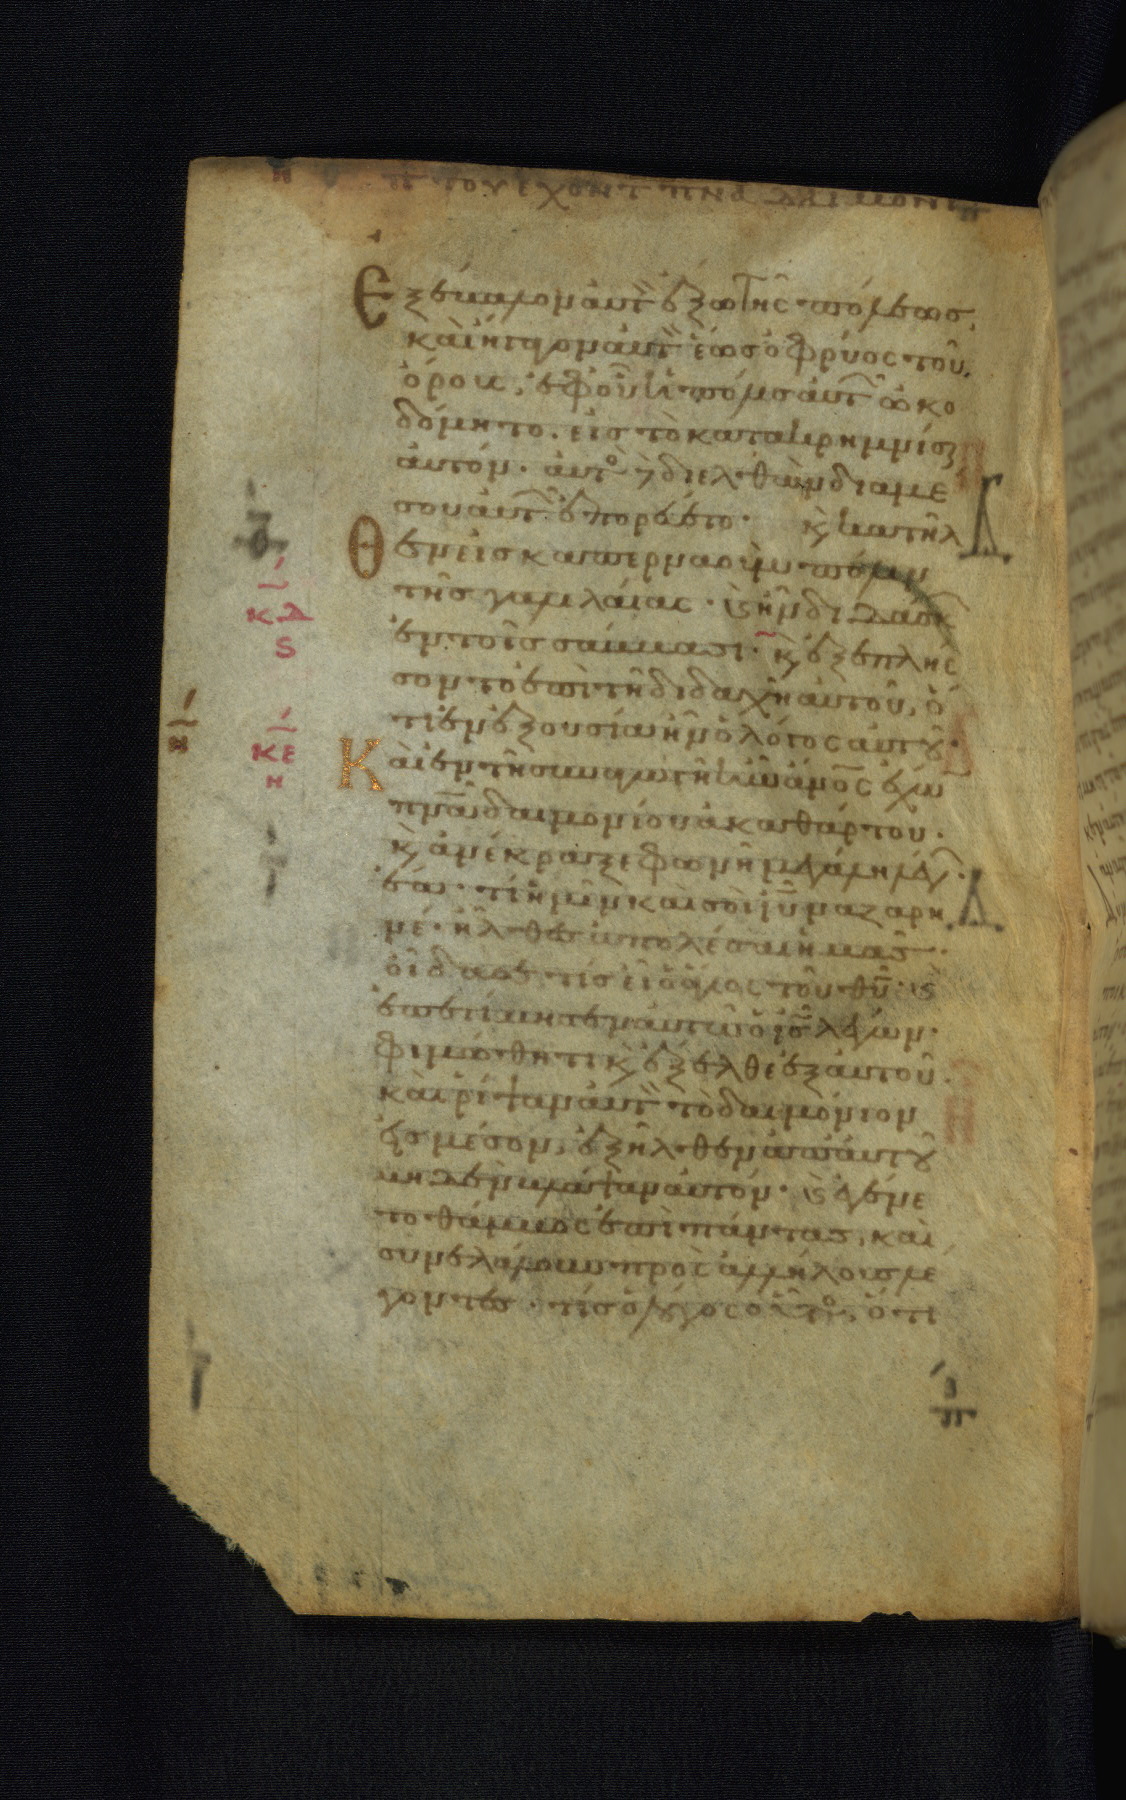 η π του εχοντ πνα δαιμονιου
Εξέβαλον αυτὸν ἔξω τῆς πόλεως,
καὶ ἤγαγον αὐτὸν ἕως ὀφρύος τοῦ
ὄρους, ἐφ οὗ ἡ πόλις αὐτῶν ᾠκο
δόμητο. εἰς τὸ κατακρημνίσαι
αὐτόν. αὐτὸς δὲ διελθὼν διαμέ
σου αὐτῶν ἐπορεύετο. κ κατῆλ
Θεν εἰς καπερναοὺμ πόλιν
τῆς γαλιλαίας. κ ἦν διδάσκ
ἐν τοῖς σάββασι. κ ἐξεπλήσ
σοντο ἐπὶ τῆ διδαχῆ αὐτοῦ, ὅ
τι ἐν ἐξουσία ἦν ὁ λόγος αὐτοῦ.
Καὶ ἐν τῆ συναγωγῆ ἦν ἀνος ἔχων
πνα δαιμονίου ἀκαθάρτου.
κ ἀνέκραξε φωνῆ μεγάλη λέγων.
ἔα. τί ἡμῖν καὶ σοὶ ιυ ναζαρη
νέ. ἦλθες ἀπολέσαι ἡμᾶς.
οἶδα σε τίς εἶ ὁ ἅγιος τοῦ θυ. κ
ἐπετίμησεν αὐτῶ ὁ ις λέγων.
φιμώθητι κ ἔξελθε ἐξ αὐτοῦ.
καὶ ῥίψαν αὐτὸν τὸ δαιμόνιον
εἰς μέσον, ἐξῆλθεν ἀπ αὐτοῦ
μηδὲν βλάψαν αὐτόν. κ ἐγένε
το θάμβος ἐπὶ πάντας, καὶ
συνελάλουν πρὸς ἀλλήλους λέ
γοντες. τίς ὁ λόγος οὗτος, ὅτι
κδ
ς
κε
η